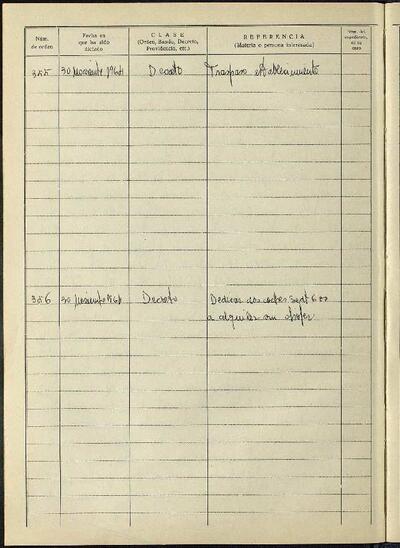 Núm. de orden
Fecha en que ha sido dictado
CLASE
(Orden, Bando, Decreto, Providencia, etc.)
REFERENCIA
(Materia o persona interesada)
Núm. del expediente, en su caso
355 30 Noviembre 1964 Decreto Traspaso establecimiento
356 30 Noviembre 1964 Decreto Dedicar dos coches Seat 600
a alquiler sin chofer